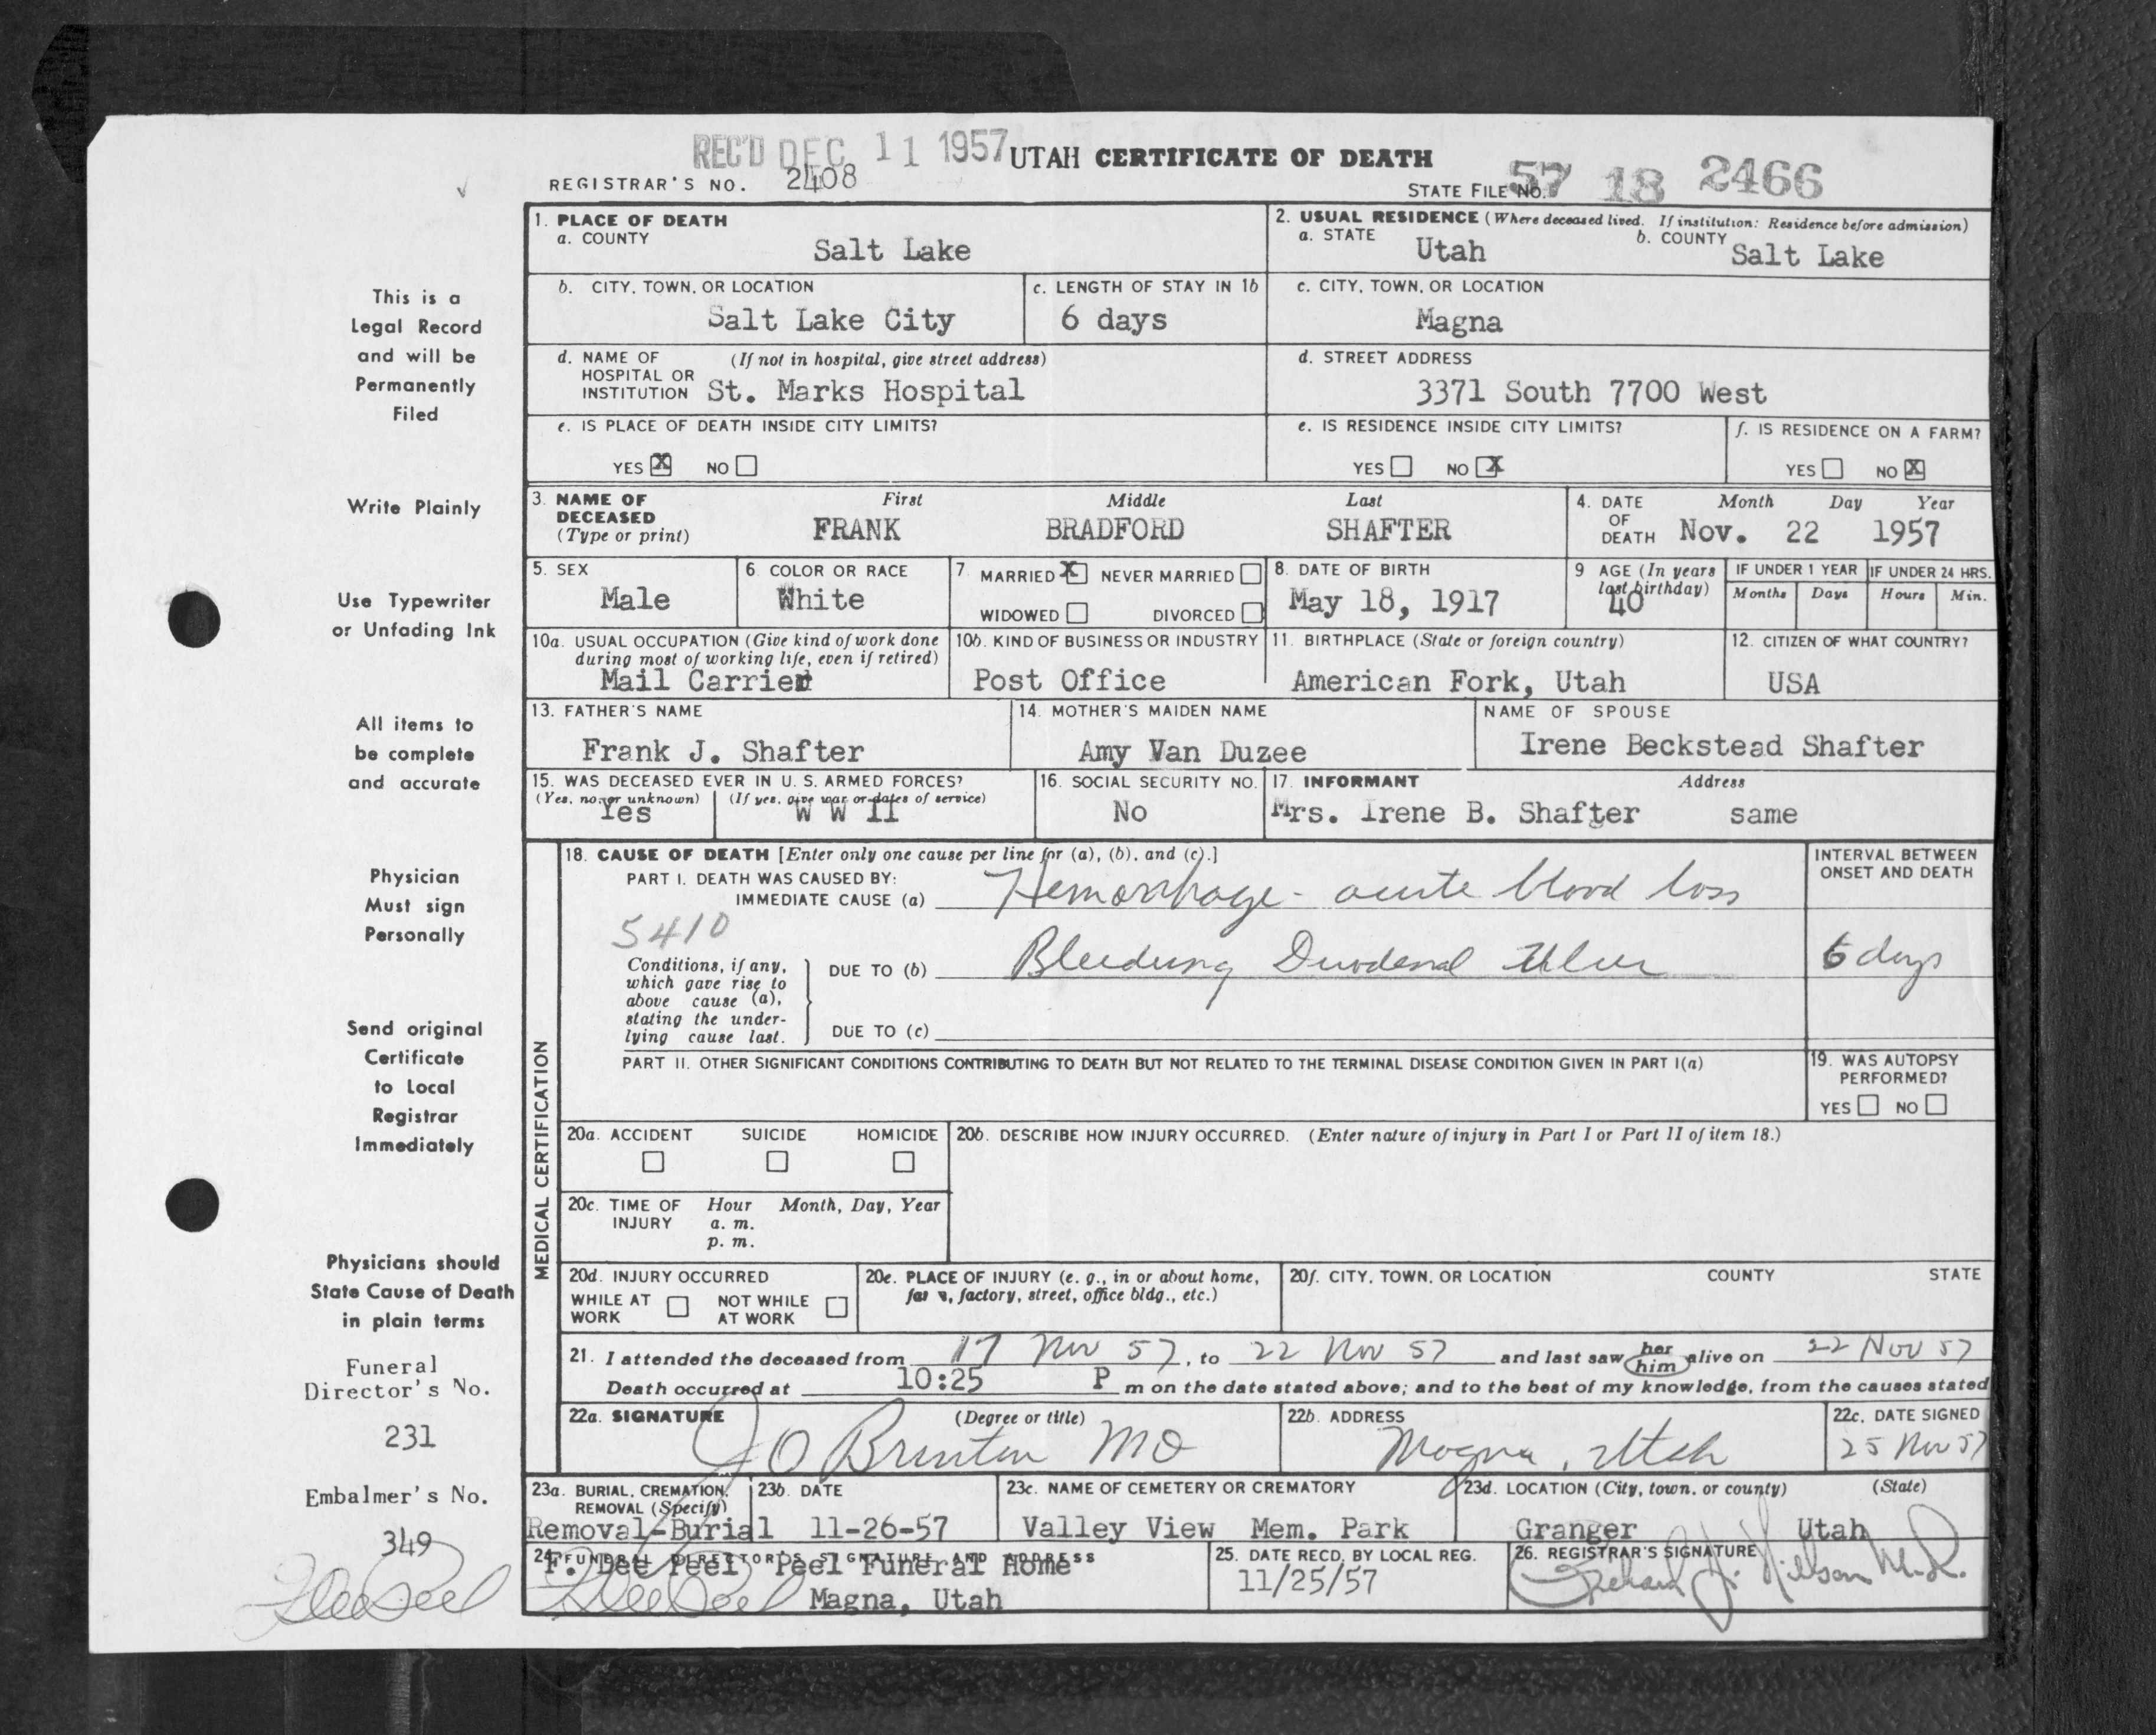 REC'D DEC 11 1957 UTAH CERTIFICATE OF DEATH
REGISTRAR'S NO. 2408 STATE FILE NO. 57 18 2466
1. PLACE OF DEATH
a. COUNTY
Salt Lake
2. USUAL RESIDENCE (Where deceased lived. If institution: Residence before admission)
a. STATE Utah b. COUNTY Salt Lake
b. CITY, TOWN, OR LOCATION
Salt Lake City
c. LENGTH OF STAY IN 1b
6 days
c. CITY, TOWN, OR LOCATION
Magna
d. NAME OF (If not in hospital, give street address)
HOSPITAL OR
INSTITUTION St. Marks Hospital
d. STREET ADDRESS
3371 South 7700 West
e. IS PLACE OF DEATH INSIDE CITY LIMITS?
YES X NO
e. IS RESIDENCE INSIDE CITY LIMITS?
YES NO X
f. IS RESIDENCE ON A FARM?
YES NO X
3. NAME OF DECEASED (Type or print)
First Middle Last
FRANK BRADFORD SHAFTER
4. DATE OF DEATH
Month Day Year
Nov. 22 1957
5. SEX
Male
6. COLOR OR RACE
White
7. MARRIED X NEVER MARRIED
WIDOWED DIVORCED
8. DATE OF BIRTH
May 18, 1917
9 AGE (In years last birthday)
40
IF UNDER 1 YEAR
Months Days
IF UNDER 24 HRS.
Hours Min.
10a. USUAL OCCUPATION (Give kind of work done
during most of working life, even if retired)
Mail Carrier
10b. KIND OF BUSINESS OR INDUSTRY
Post Office
11. BIRTHPLACE (State or foreign country)
American Fork, Utah
12. CITIZEN OF WHAT COUNTRY?
USA
13. FATHER'S NAME
Frank J. Shafter
14. MOTHER'S MAIDEN NAME
Amy Van Duzee
NAME OF SPOUSE
Irene Beckstead Shafter
15. WAS DECEASED EVER IN U. S. ARMED FORCES?
(Yes, no, or unknown) (If yes, give war or dates of service)
Yes W W II
16. SOCIAL SECURITY NO.
No
17. INFORMANT Address
Mrs. Irene B. Shafter same
MEDICAL CERTIFICATION
18. CAUSE OF DEATH [Enter only one cause per line for (a), (b), and (c).]
PART I. DEATH WAS CAUSED BY:
IMMEDIATE CAUSE (a) Hemorrhage - acute blood loss
5410
INTERVAL BETWEEN
ONSET AND DEATH
Conditions, if any,
which gave rise to
above cause (a),
stating the under-
lying cause last.
DUE TO (b) Bleeding Duodenal Ulcer
6 days
DUE TO (c)
PART II. OTHER SIGNIFICANT CONDITIONS CONTRIBUTING TO DEATH BUT NOT RELATED TO THE TERMINAL DISEASE CONDITION GIVEN IN PART I(a)
19. WAS AUTOPSY
PERFORMED?
YES NO
20a. ACCIDENT SUICIDE HOMICIDE
20b. DESCRIBE HOW INJURY OCCURRED. (Enter nature of injury in Part I or Part II of item 18.)
20c. TIME OF INJURY
Hour Month, Day, Year
a. m.
p. m.
20d. INJURY OCCURRED
WHILE AT WORK NOT WHILE AT WORK
20e. PLACE OF INJURY (e. g., in or about home,
farm, factory, street, office bldg., etc.)
20f. CITY, TOWN, OR LOCATION COUNTY STATE
21. I attended the deceased from 17 Nov 57, to 22 Nov 57 and last saw her him alive on 22 Nov 57
Death occurred at 10:25 P m on the date stated above; and to the best of my knowledge, from the causes stated
22a. SIGNATURE (Degree or title)
J O Brinton MD
22b. ADDRESS
Magna, Utah
22c. DATE SIGNED
25 Nov 57
23a. BURIAL, CREMATION,
REMOVAL (Specify)
Removal-Burial
23b. DATE
11-26-57
23c. NAME OF CEMETERY OR CREMATORY
Valley View Mem. Park
23d. LOCATION (City, town, or county) (State)
Granger Utah
24. FUNERAL DIRECTOR'S SIGNATURE AND ADDRESS
F. Dee Peel Peel Funeral Home
F Dee Peel Magna, Utah
25. DATE RECD. BY LOCAL REG.
11/25/57
26. REGISTRAR'S SIGNATURE
Richard J. Nielson M.D.
This is a
Legal Record
and will be
Permanently
Filed
Write Plainly
Use Typewriter
or Unfading Ink
All items to
be complete
and accurate
Physician
Must sign
Personally
Send original
Certificate
to Local
Registrar
Immediately
Physicians should
State Cause of Death
in plain terms
Funeral
Director's No.
231
Embalmer's No.
349
F Dee Peel